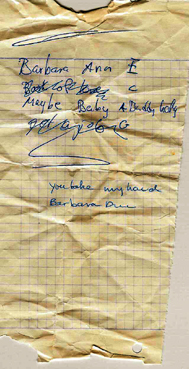 Barbara Ann E
C
Maybe Baby A Buddy Holly
G
you take my hand
Barbara Ann